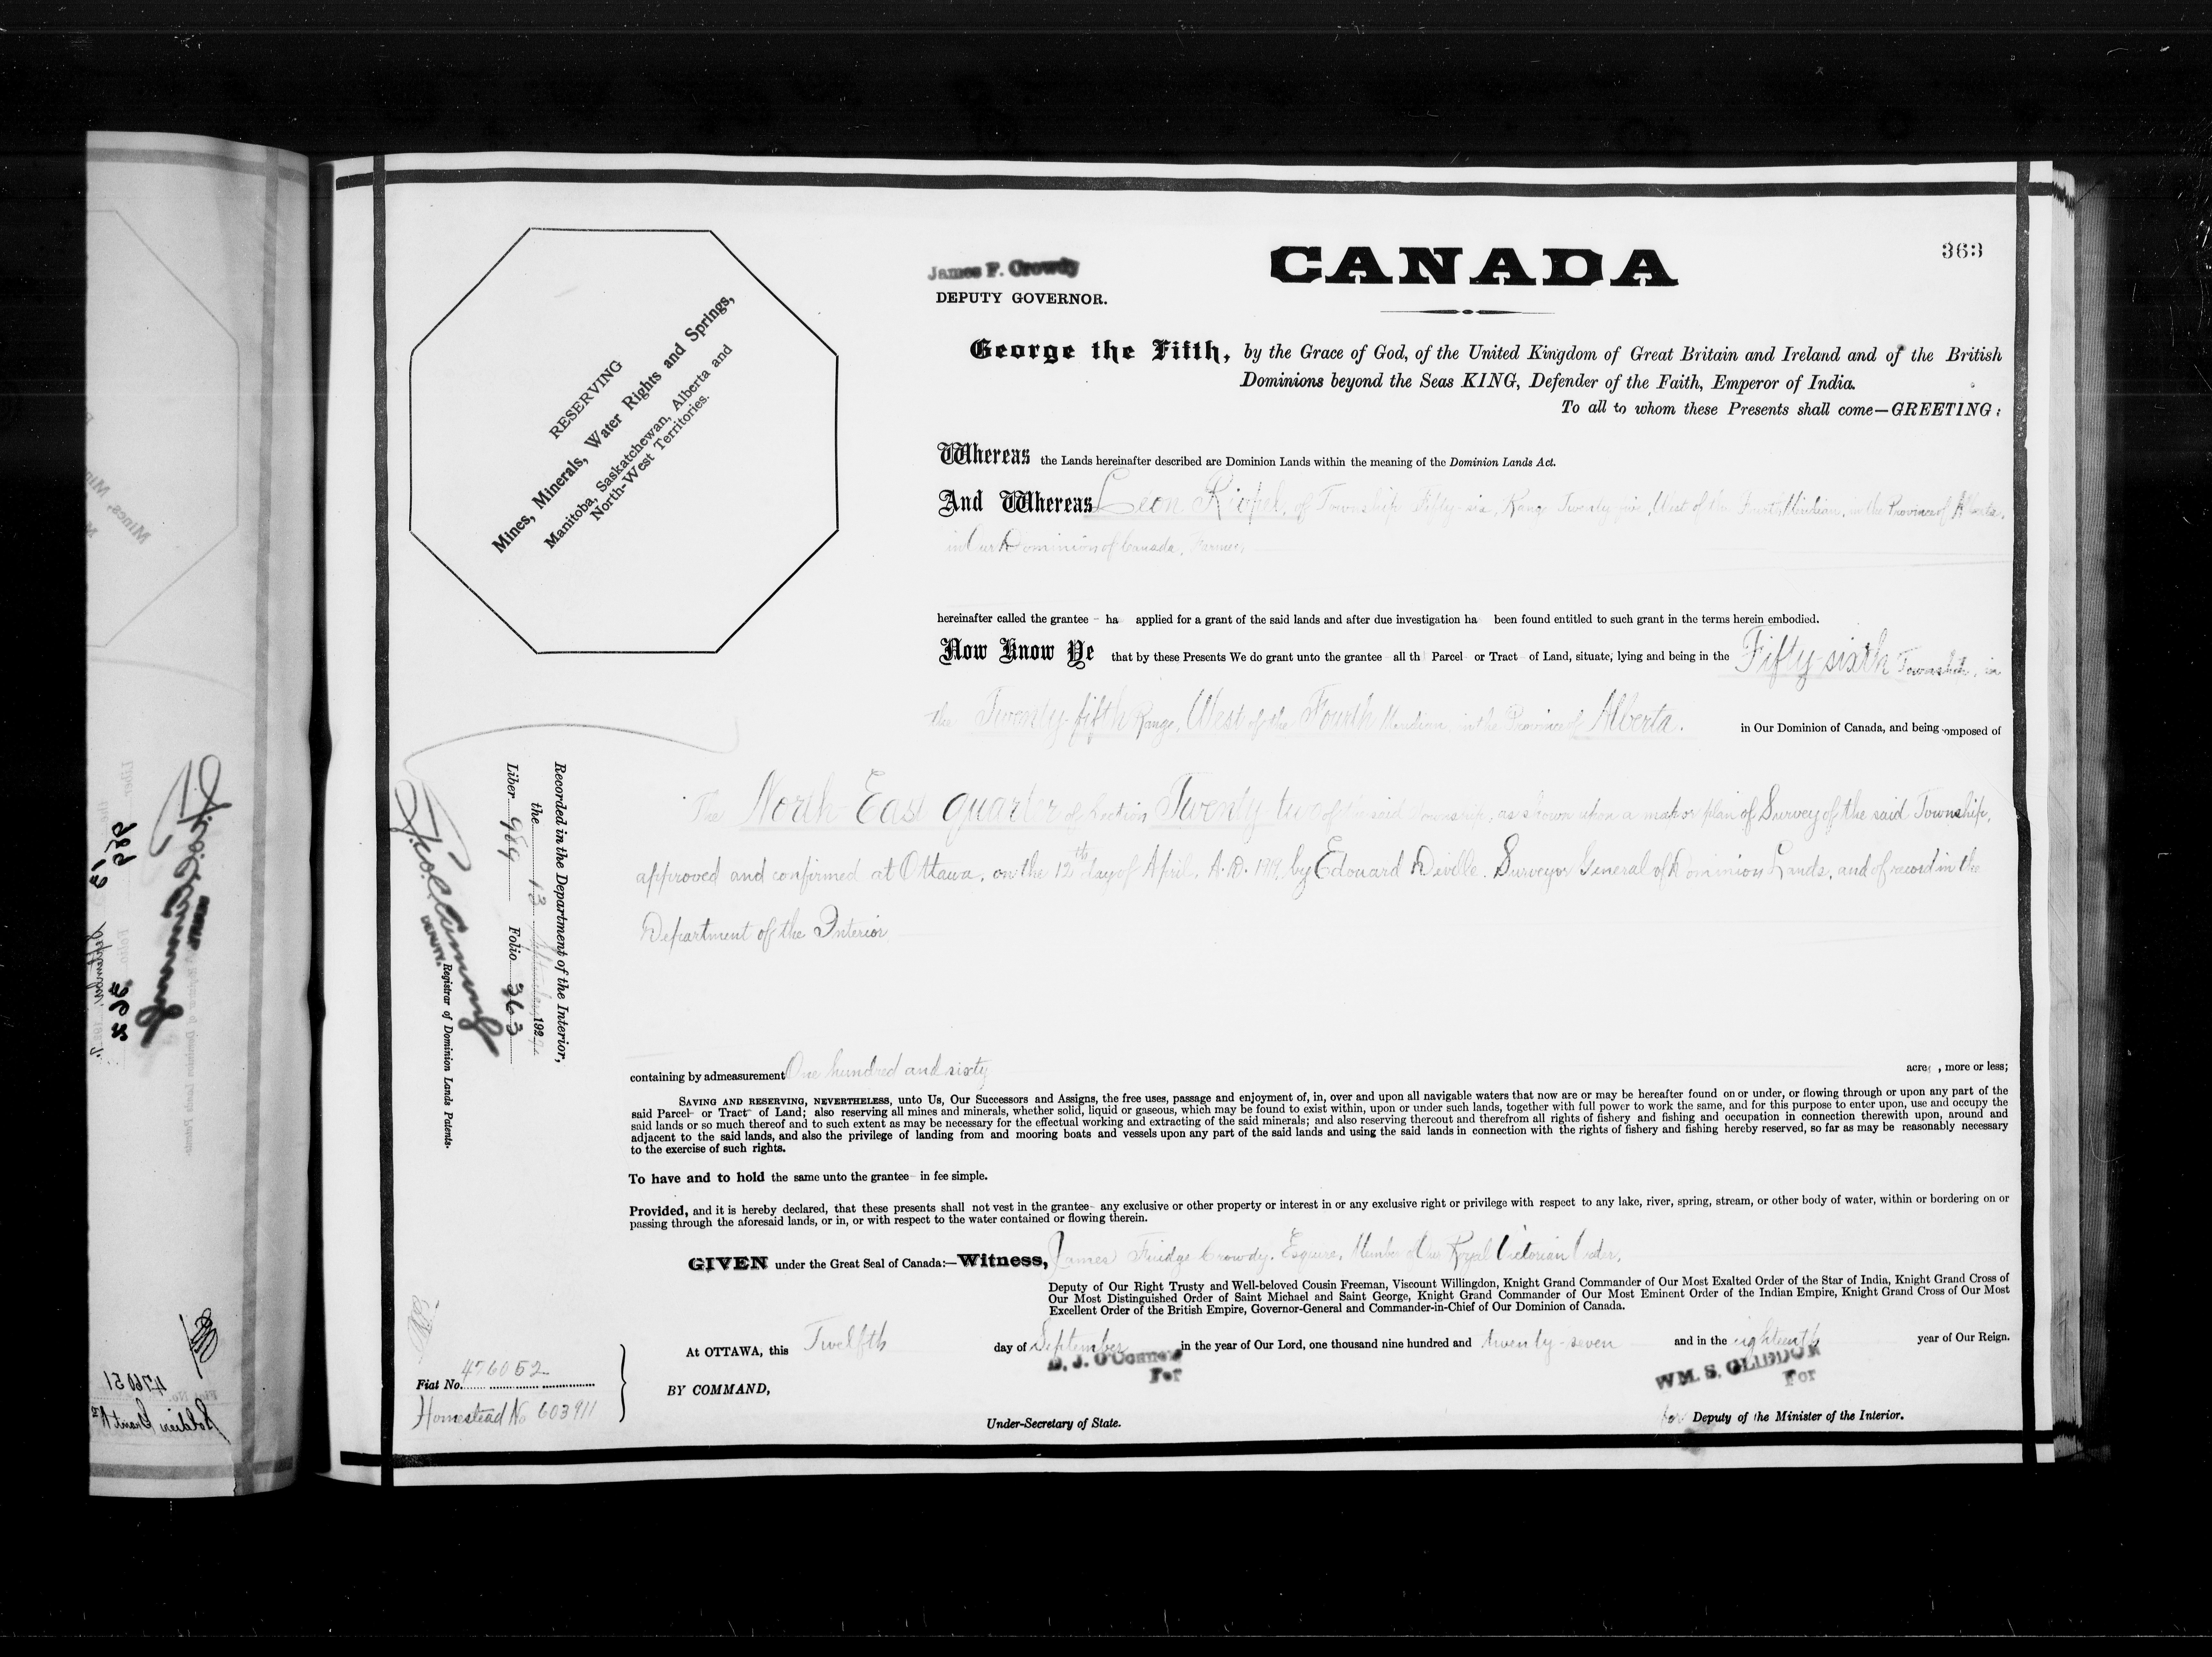 363
CANADA
James F. Crowdy
DEPUTY GOVERNOR.
George the Fifth, by the Grace of God, of the United Kingdom of Great Britain and Ireland and of the British
Dominions beyond the Seas KING, Defender of the Faith, Emperor of India.
To all to whom these Presents shall come—GREETING:
RESERVING
Mines, Minerals, Water Rights and Springs,
Manitoba, Saskatchewan, Alberta and
North-West Territories.
Whereas the Lands hereinafter described are Dominion Lands within the meaning of the Dominion Lands Act.
And Whereas Leon Riopel, of Township Fifty-six, Range Twenty five, West of the Fourth Meridian, in the Province of Alberta,
in Our Dominion of Canada, Farmer,
hereinafter called the grantee - ha applied for a grant of the said lands and after due investigation ha been found entitled to such grant in the terms herein embodied.
Now Know Ye that by these Presents We do grant unto the grantee all th Parcel or Tract of Land, situate, lying and being in the Fifty sixth Township, in
the Twenty-fifth Range, West of the Fourth Meridian, in the Province of Alberta. in Our Dominion of Canada, and being composed of
The North East quarter of Section Twenty two of the said Township, as shown upon a map or plan of Survey of the said Township,
approved and confirmed at Ottawa, on the 12th day of April, A.D. by Edouard Deville, Surveyor General of Dominion Lands, and of record in the
Department of the Interior
containing by admeasurement One hundred and sixty acres, more or less;
SAVING AND RESERVING, NEVERTHELESS, unto Us, Our Successors and Assigns, the free uses, passage and enjoyment of, in, over and upon all navigable waters that now are or may be hereafter found on or under, or flowing through or upon any part of the
said Parcel- or Tract- of Land; also reserving all mines and minerals, whether solid, liquid or gaseous, which may be found to exist within, upon or under such lands, together with full power to work the same, and for this purpose to enter upon, use and occupy the
said lands or so much thereof and to such extent as may be necessary for the effectual working and extracting of the said minerals; and also reserving thereout and therefrom all rights of fishery and fishing and occupation in connection therewith upon, around and
adjacent to the said lands, and also the privilege of landing from and mooring boats and vessels upon any part of the said lands and using the said lands in connection with the rights of fishery and fishing hereby reserved, so far as may be reasonably necessary
to the exercise of such rights.
To have and to hold the same unto the grantee- in fee simple.
Provided, and it is hereby declared, that these presents shall not vest in the grantee- any exclusive or other property or interest in or any exclusive right or privilege with respect to any lake, river, spring, stream, or other body of water, within or bordering on or
passing through the aforesaid lands, or in, or with respect to the water contained or flowing therein.
GIVEN under the Great Seal of Canada:—Witness, James Crowdy, Esquire, Member of Our Royal Victorian Order,
Deputy of Our Right Trusty and Well-beloved Cousin Freeman, Viscount Willingdon, Knight Grand Commander of Our Most Exalted Order of the Star of India, Knight Grand Cross of
Our Most Distinguished Order of Saint Michael and Saint George, Knight Grand Commander of Our Most Eminent Order of the Indian Empire, Knight Grand Cross of Our Most
Excellent Order of the British Empire, Governor-General and Commander-in-Chief of Our Dominion of Canada.
At OTTAWA, this Twelfth day of September in the year of Our Lord, one thousand nine hundred and twenty-seven and in the eighteenth year of Our Reign.
BY COMMAND,
D. J. O'Connor
For
Under-Secretary of State.
WM. S. GLIDDON
For
for Deputy of the Minister of the Interior.
Recorded in the Department of the Interior,
the 13 September 1927
Liber 989 Folio 363
DEPUTY. Registrar of Dominion Lands Patents.
Fiat No. 476052
Homestead No 603911
989
363
476051
Soldier Grant No